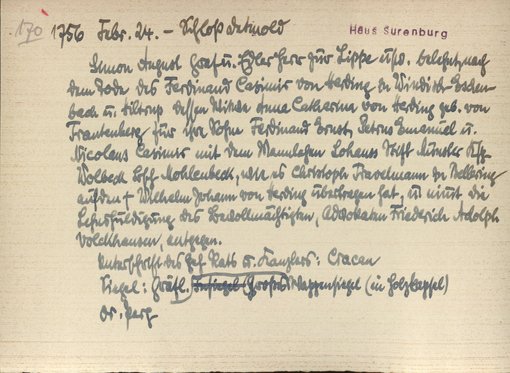 170 1756 Febr. 24. – Schloß Detmold
Haus Surenburg
Simon August Graf u. Edler Herr zur Lippe usw. belehnt nach
dem Tode des Ferdinand Casimir von Herding in Windisch Eschen-
bach u. Hiltrup dessen Witwe Anna Catharina von Herding geb. von
Frantenberg für ihre Söhne Ferdinand Ernst, Petrus Emanuel u.
Nicolaus Casimir mit dem Mannlehen Lohaus Stift Münster Ksp.
Wolbeck Bsch. Mohlenbeck, wie es Christoph Travelmann zu
auf den † Wilhelm Johann von Herding übertragen hat, u. nimmt die
Lehnshuldigung des Bevollmächtigten, Advokaten Friederich Adolph
Volckhausen, entgegen.
Unterschrift des Geh. Rats u. Kanzlers:
Siegel: Gräfl. (Großes) Wappensiegel (in Holzkapsel)
Or. Perg.